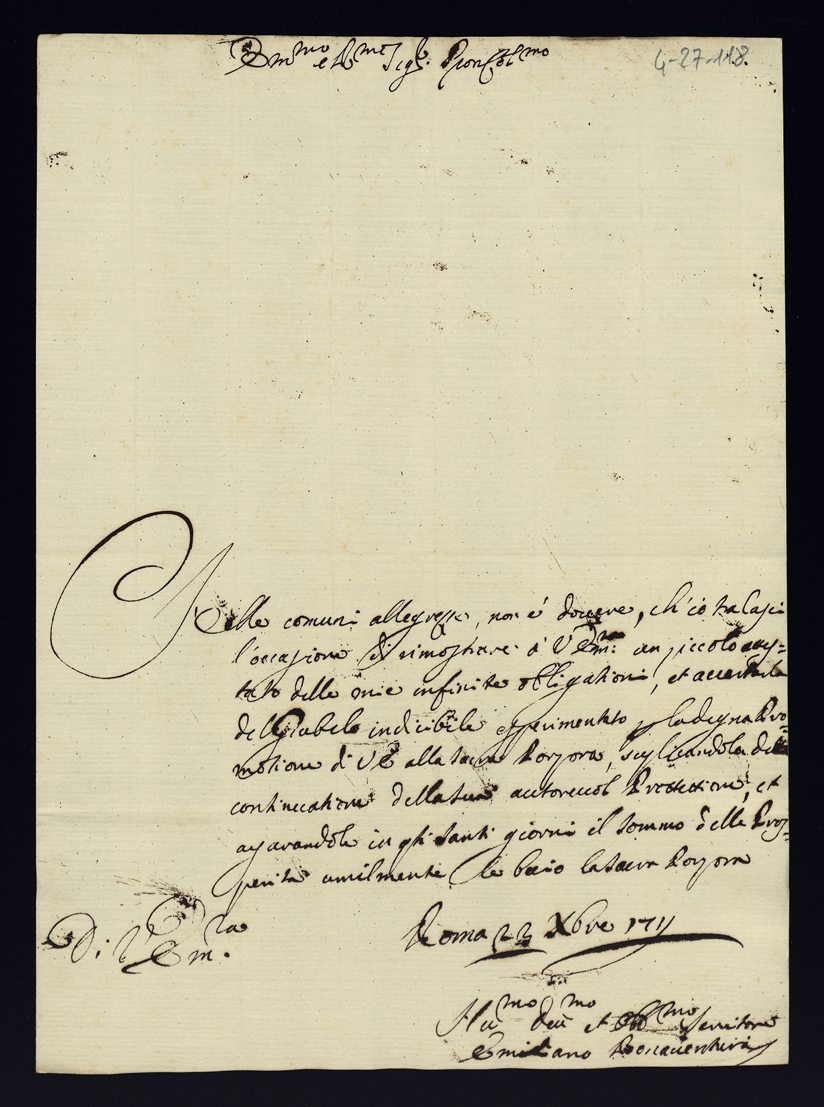 Em.mo e R.mo Sig.r Pron Col.mo
4-27-118.
Nelle comuni allegrezze, non è dovere, ch'io tralasci
l'occasione di rimostrare à V Em.za un piccolo attes=
tato delle mie infinite obligationi, et accertarla
del Giubelo indicibile esperimentato p la degna Pro=
motione di VE alla sacra Porpora, suplicandola della
continuatione della sua autorevol Protettione, et
agurandole in qsti santi giorni il sommo delle Pros=
perità umilmente le bacio la sacra Porpora
Di V Em.za
Roma 22 Xbre 1711
Hu.mo Deu.mo et Obb.mo Servitore
Emiliano